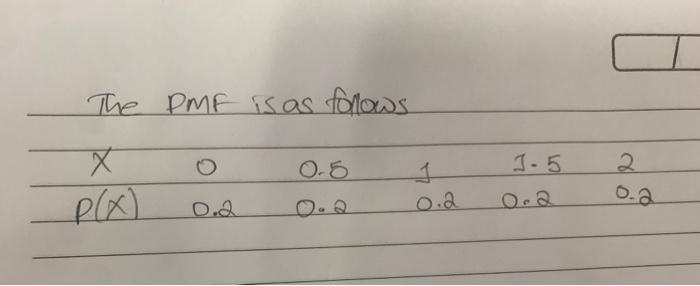 The PMF is as follows
X 0 0.5 1 1.5 2
P(X) 0.2 0.2 0.2 0.2 0.2